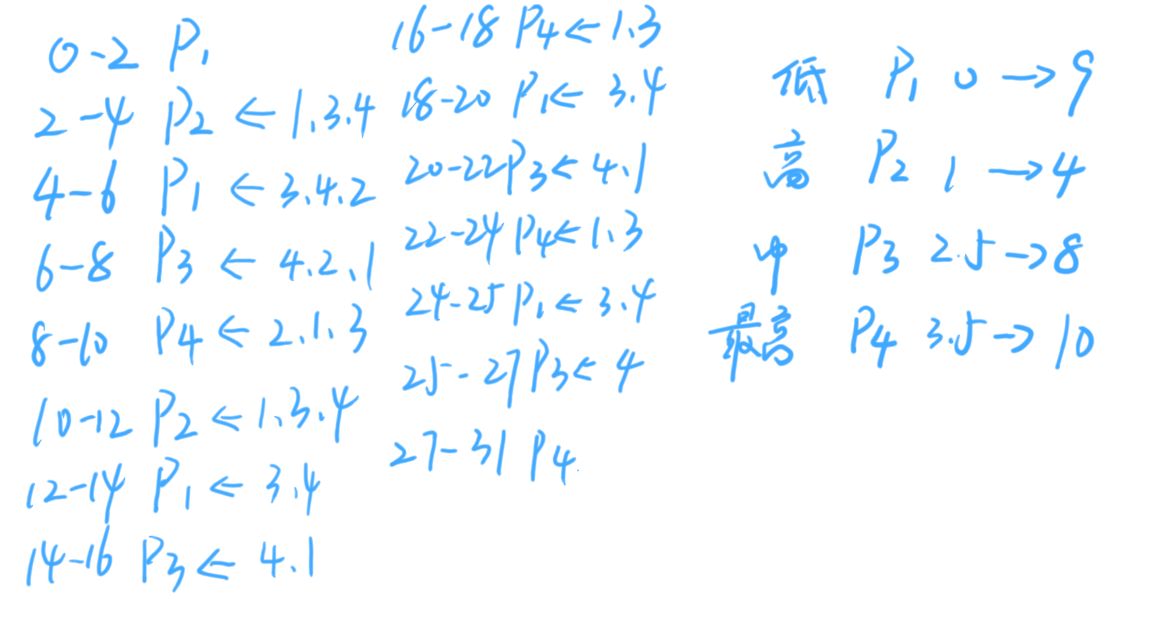 0-2 P1
2-4 P2 ← 1.3.4
4-6 P1 ← 3.4.2
6-8 P3 ← 4.2.1
8-10 P4 ← 2.1.3
10-12 P2 ← 1.3.4
12-14 P1 ← 3.4
14-16 P3 ← 4.1
16-18 P4 ← 1.3
18-20 P1 ← 3.4
20-22 P3 ← 4.1
22-24 P4 ← 1.3
24-25 P1 ← 3.4
25-27 P3 ← 4
27-31 P4
低 P1 0 → 9
高 P2 1 → 4
中 P3 2.5 → 8
最高 P4 3.5 → 10